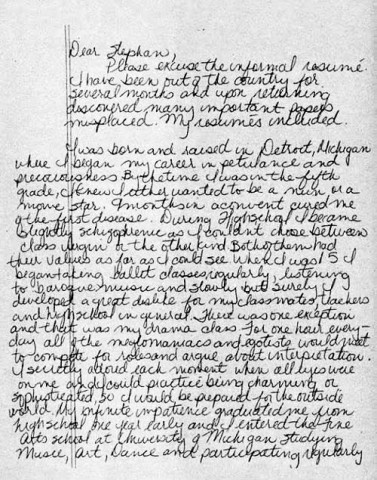 Dear Stephan,
Please excuse the informal resumé.
I have been out of the country for
several months and upon returning
discovered many important papers
misplaced. My resumés included.
I was born and raised in Detroit, Michigan
where I began my career in petulance and
preciousness. By the time I was in the fifth
grade, I knew I either wanted to be a nun or a
movie star. 9 months in a convent cured me
of the first disease. During High school I became
slightly schizophrenic as I couldn't chose between
class virgin or the other kind. Both of them had
their values as far as I could see. When I was 15 I
began taking ballet classes regularly, listening
to baroque music and slowly but surely I
developed a great dislike for my classmates, teachers
and high school in general. There was one exception
and that was my drama class. For one hour every-
day all the megalomaniacs and egotists would meet
to compete for roles and argue about interpretation.
I secretly adored each moment when all eyes were
on me and I could practice being charming or
sophisticated, so I would be prepared for the outside
world. My infinite impatience graduated me from
high school one year early and I entered the Fine
Arts school at University of Michigan studying
Music, Art, Dance and participating regularly